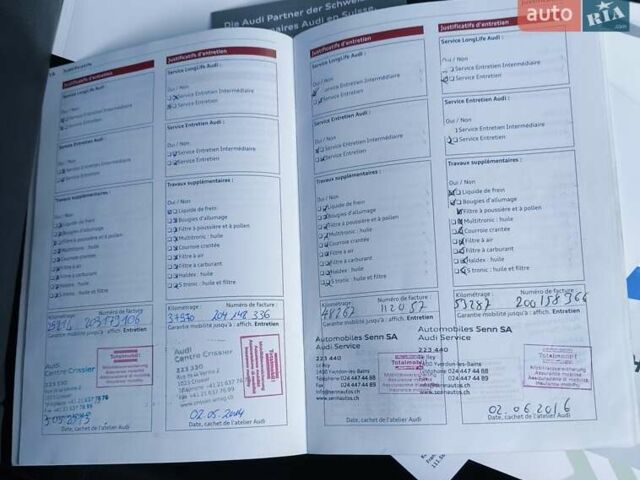 Die Audi Partner der Schweiz
naires Audi en Suisse
auto RIA
Justificatifs
Justificatifs d'entretien
Service LongLife Audi :
Oui / Non
Service Entretien Intermédiaire
Service Entretien
Service Entretien Audi :
Oui / Non
Service Entretien Intermédiaire
Service Entretien
Travaux supplémentaires :
Oui / Non
Liquide de frein
Bougies d'allumage
Filtre à poussière et à pollen
Multitronic : huile
Courroie crantée
Filtre à air
Filtre à carburant
Haldex : huile
S tronic : huile et filtre
Kilométrage : Numéro de facture :
203179106
Garantie mobilité jusqu'à : affich. Entretien
Audi
Centre Crissier
223 330
Totalmobil!
Date, cachet de l'atelier Audi
Justificatifs d'entretien
Service LongLife Audi :
Oui / Non
Service Entretien Intermédiaire
Service Entretien
Service Entretien Audi :
Oui / Non
Service Entretien Intermédiaire
Service Entretien
Travaux supplémentaires :
Oui / Non
Liquide de frein
Bougies d'allumage
Filtre à poussière et à pollen
Multitronic : huile
Courroie crantée
Filtre à air
Filtre à carburant
Haldex : huile
S tronic : huile et filtre
Kilométrage : Numéro de facture :
37570 204 148 336
Garantie mobilité jusqu'à : affich. Entretien
Audi
Centre Crissier
223 330
1023 Crissier
02.05.2014
Date, cachet de l'atelier Audi
Justificatifs d'entretien
Service LongLife Audi :
Oui / Non
Service Entretien Intermédiaire
Service Entretien
Service Entretien Audi :
Oui / Non
Service Entretien Intermédiaire
Service Entretien
Travaux supplémentaires :
Oui / Non
Liquide de frein
Bougies d'allumage
Filtre à poussière et à pollen
Multitronic : huile
Courroie crantée
Filtre à air
Filtre à carburant
Haldex : huile
S tronic : huile et filtre
Kilométrage : Numéro de facture :
48262 112052
Garantie mobilité jusqu'à : affich. Entretien
Automobiles Senn SA
Audi Service
223 440
1400 Yverdon-les-Bains
Téléphone 024 447 44 88
Date, cachet de l'atelier Audi
Justificatifs d'entretien
Service LongLife Audi :
Oui / Non
Service Entretien Intermédiaire
Service Entretien
Service Entretien Audi :
Oui / Non
Service Entretien Intermédiaire
Service Entretien
Travaux supplémentaires :
Oui / Non
Liquide de frein
Bougies d'allumage
Filtre à poussière et à pollen
Multitronic : huile
Courroie crantée
Filtre à air
Filtre à carburant
Haldex : huile
S tronic : huile et filtre
Kilométrage : Numéro de facture :
53282 200158366
Garantie mobilité jusqu'à : affich. Entretien
Automobiles Senn SA
Audi Service
223 440
1400 Yverdon-les-Bains
Téléphone 024 447 44 88
Totalmobil!
Assurance mobilité
02.06.2016
Date, cachet de l'atelier Audi